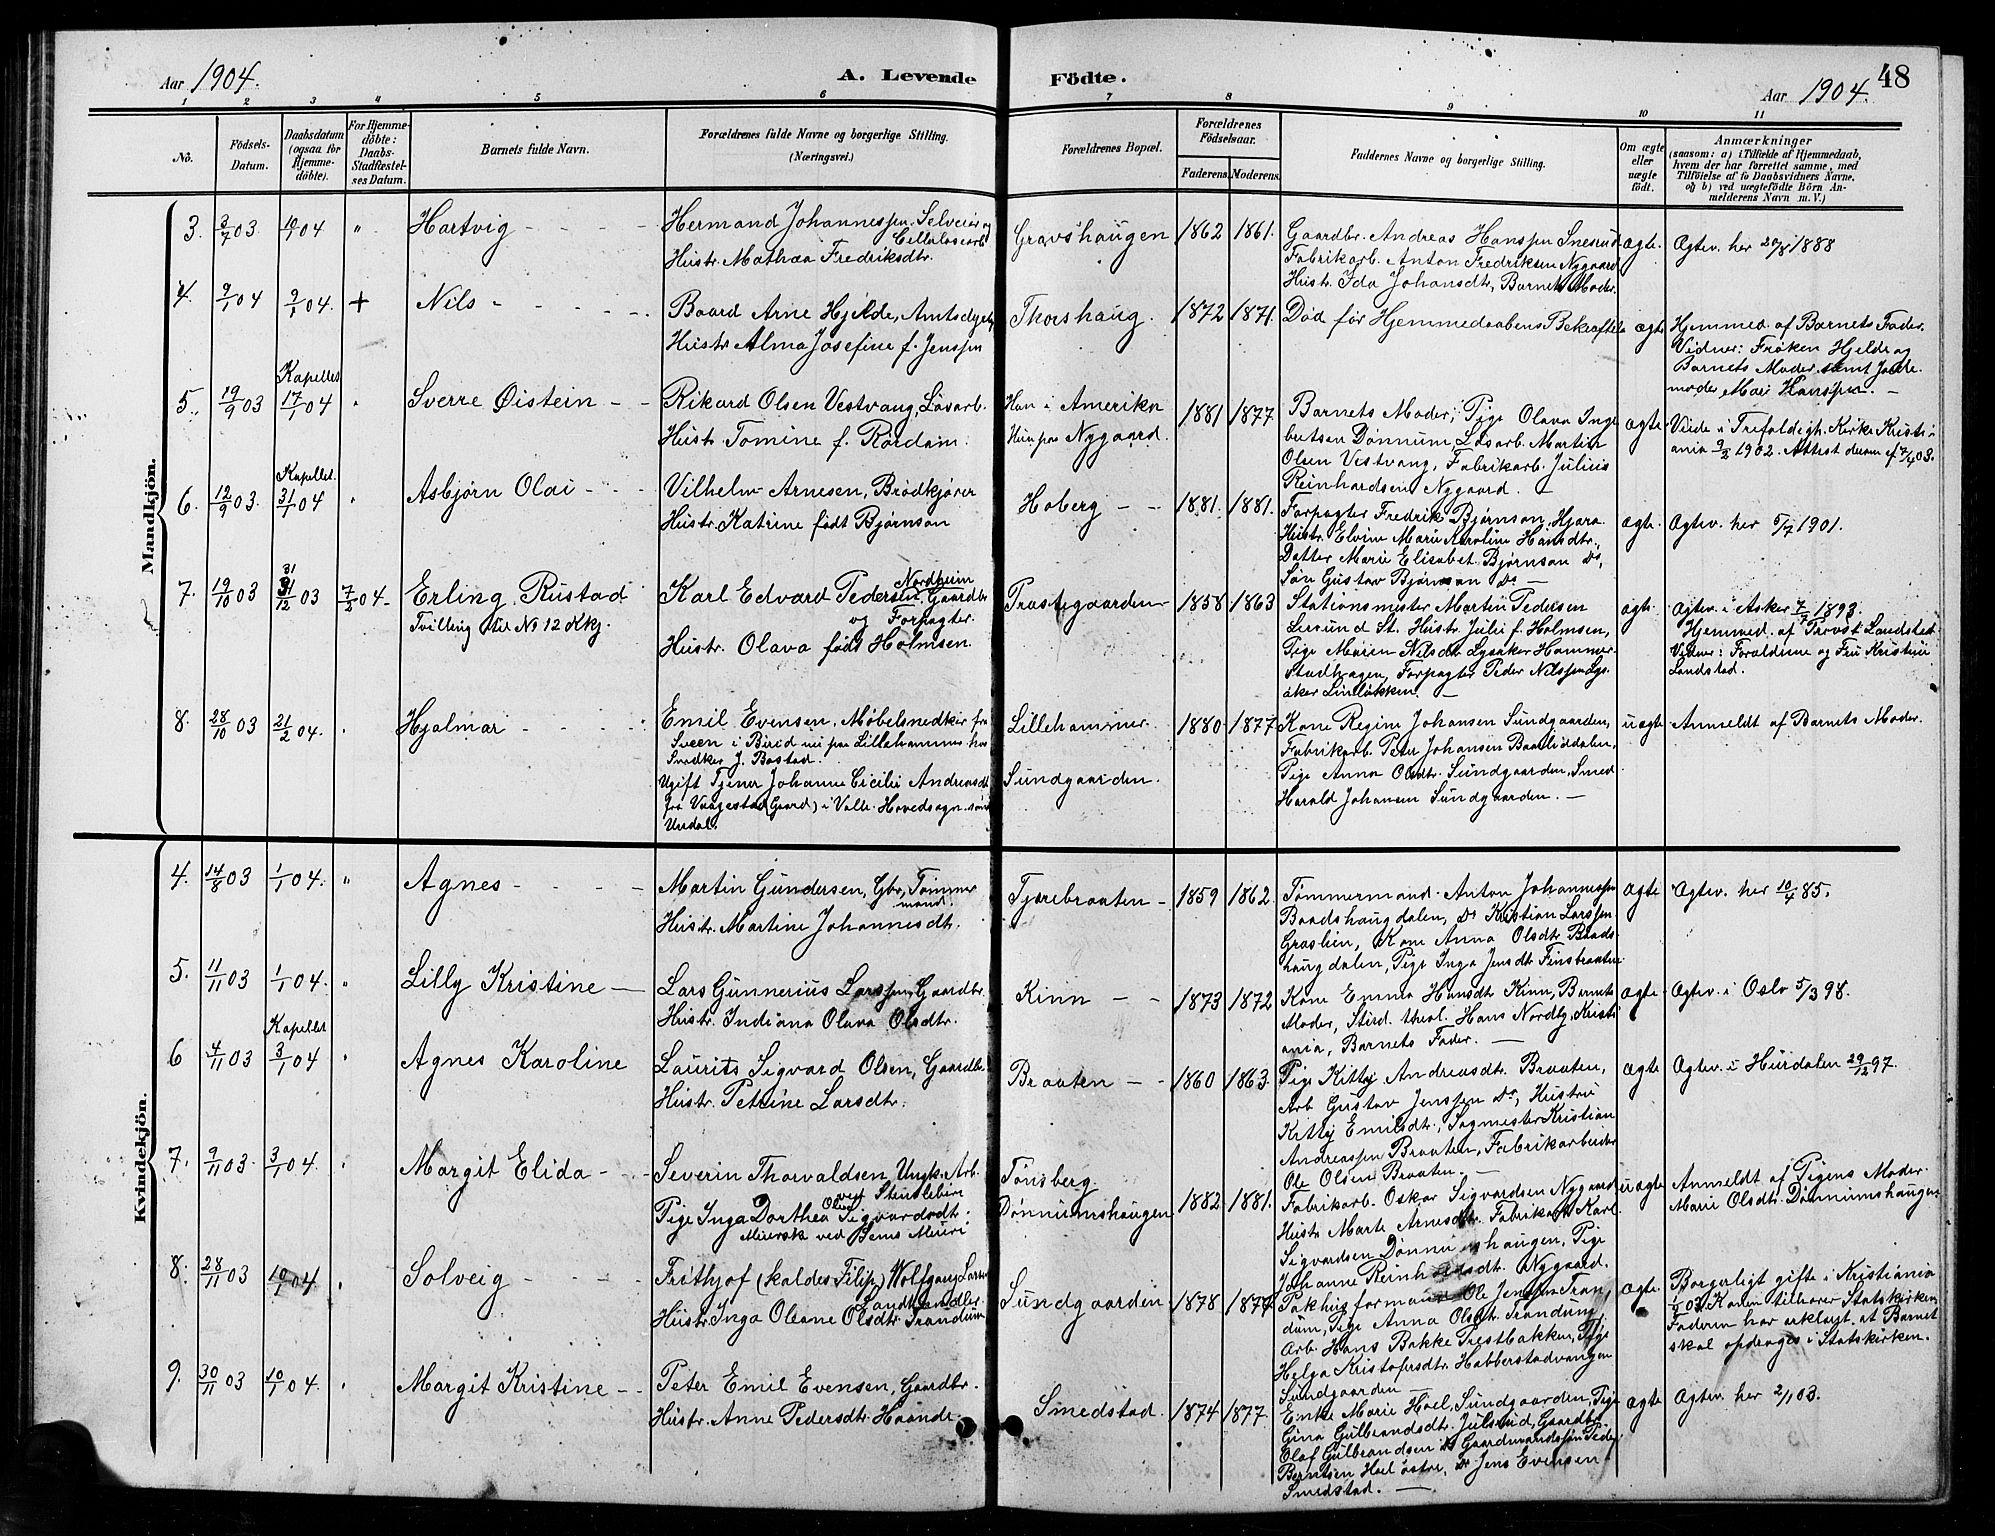 Aar 1904.
A. Levende
Födte.
Aar 1904.
48
1 2 3 4 5 6 7 8 9 10 11
No.
Födsels-
Datum.
Daabsdatum
(ogsaa for
Hjemme-
döbte).
For Hjemme-
döbte:
Daabs-
Stadfæstel-
ses Datum.
Barnets fulde Navn.
Forældrenes fulde Navne og borgerlige Stilling.
(Næringsvei.)
Forældrenes Bopæl.
Forældrenes
Födselsaar.
Faderens. Moderens.
Faddernes Navne og borgerlige Stilling.
Om ægte
eller
uægte
födt.
Anmærkninger
(saasom: a) i Tilfælde af Hjemmedaab,
hvem der har forrettet samme, med
Tilföielse af to Daabsvidners Navne,
og b) ved uægtefödte Börn An-
melderens Navn m. V.)
Mandkjön.
3. 3/7 03 10/1 04 " Hartvig
Hermand Johannessen, Selveier og
Cellulosearb.
Hustr. Mathea Fredriksdtr.
Gravshaugen 1862 1861.
Gaardbr. Andreas Hanssen Snesrud
Fabrikarb. Anton Fredriksen Nygaard
Hustr. Ida Johansdtr, Barnets Moder.
ægte. Ægtev. her 20/8 1888
4. 9/1 04 9/1 04. + Nils
Baard Arne Hjelde, Amtsdyrlæ
Hustr. Alma Josefine f. Jenssen
Thorshaug. 1872 1871.
Död för Hjemmedaabens Bekræftelse
ægte
Hjemmed. af Barnets Fader.
Vidner: Fröken Hjelde og
Barnets Moder samt Jorde-
moder Mari Hanssen.
5. 19/9 03 Kapellet 17/1 04 Sverre Øistein
Rikard Olsen Vestvang, Løsarb.
Hustr. Tomine f. Rördam.
Han i Amerika
Hun paa Nygaard.
1881 1877
Barnets Moder, Pige Olava Inge
bertsen Dönnum, Løsarb. Martin
Olsen Vestvang, Fabrikarb. Julius
Reinhardsen Nygaard.
ægte
Viede i Trefoldigh. Kirke Kristi-
ania 9/2 1902. Attest derom
6. 12/9 03. Kapellet 31/1 04 Asbjørn Olai
Vilhelm Arnesen, Brödkjører
Hustr. Katrine født Bjørnson
Hoberg 1881. 1881.
Forpagter Fredrik Bjørnson, Hjara
Hustr. Elvine Marie Karoline Hansdtr.,
Datter Marie Elisabet Bjørnson Do,
Søn Gustav Bjørnson Do
ægte. Ægtev. her 5/7 1901.
7. 19/10 03 31/12 03 7/2 04. Erling Rustad
Tvilling til No 12 Kkj.
Karl Edvard Pedersen Nordheim Gaardbr.
og Forpagter.
Hustr. Olava født Holmsen.
Prastegaarden 1858 1863
Stationsmester Martin Pedersen
St. Hustr. Juli f. Holmsen,
Pige Maren Nilsdtr Lysaker Hammer-
stadhagen, Forpagter Peder Nilssen Lys-
aker Linløkken.
ægte.
Ægtev. i Asker 7/7 1893.
Hjemmed. af Provst Landstad.
Vidner: Forældrene og Fru Kristine
Landstad.
8. 28/10 03 21/2 04. Hjalmar
Emil Evensen, Møbelsnedker fra
Sveen i Birid nu paa Lillehammer hos
Snedker J. Bastad.
Ugift Tjener Johanne Cicilie Andreasdt
fra Vaagestad (Gaard) i Valle Hovedsogn
Undal.
Lillehammer
Sundgaarden.
1880 1877
Kone Regine Johansen Sundgaarden,
Fabrikarb. Peter Johansen Baasliddalen,
Pige Anna Olsdtr. Sundgaarden, Smed
Harald Johansen Sundgaarden.
uægte Anmeldt af Barnets Moder.
Kvindekjön.
4. 14/8 03 1/1 04. " Agnes
Martin Gundersen, Gbr, Tömmer
mand.
Hustr. Martine Johannesdtr.
Tjærebraaten 1859 1862
Tømmermand Anton Johannessen
Baadshaugdalen, Do Kristian Larssen
Graslien, Kone Anna Olsdtr Baads-
haugdalen, Pige Inga Jensdtr Finsbraaten
ægte Ægtev. her 10/4 85.
5. 11/11 03 1/1 04. " Lilly Kristine
Lars Gunnerius Larssen, Gaardbr.
Hustr. Indiana Olava Olsdtr.
Kinn 1873 1872
Kone Emma Hansdtr Kinn, Barnets
Moder, Stud. theol. Hans Nordby, Kristi
ania, Barnets Fader.
ægte Ægtev. i Oslo 5/3 98.
6 4/11 03 Kapellet 3/1 04 Agnes Karoline
Laurits Sigvard Olsen, Gaardbr
Hustr. Petrine Larsdtr.
Braaten 1860 1863.
Pige Kitty Andreasdtr. Braaten,
Arb. Gustav Jenssen Do, Hustru
Kitty Emilsdtr., Sagmester Kristian
Andreassen Braaten, Fabrikarbeider
Ole Olsen Braaten.
ægte Ægtev. i Hurdalen 29/12 97.
7. 9/11 03. 3/1 04. Margit Elida
Severin Thorvaldsen, Ungk. Arb.
Pige Inga Dorthea Olea Sigvardsdtr.
Meiersk ved Jems Meieri
Tønsberg
Dønnumshaugen
1882 1881.
Fabrikarb. Oskar Sigvardsen Nygaard
Hustr. Marte Arnesdtr. Fabrikarb Karl
Sigvardsen Dønnumshaugen, Pige
Johanne Reinhardsdtr. Nygaard.
uægte Anmeldt af Pigens Moder
Marie Olsdtr. Dönnumshaugen
8. 28/11 03 10/1 04 Solveig
Frithjof (kaldes Filip) Wolfgang Larsen
Landhandler
Hustr. Inga Oleane Olsdtr. Trandum
Sundgaarden 1878 1877
Pakhusformand Ole Jenssen Tran
dum, Pige Anna Olsdtr Trandum,
Arb. Hans Bakke Trestbakken, Pige
Helga Kristofersdtr. Habberstadvangen
Sundgaarden
ægte.
Borgerligt gifte i Kristiania
03. Konen tilhører Statskirken
Faderen har erklaret at Barnet
skal opdrages i Statskirken.
9. 30/11 03 10/1 04. Margit Kristine
Peter Emil Evensen, Gaardbr.
Hustr. Anne Pedersdtr. Haande
Smedstad. 1874 1877.
Enke Marie Hoel, Sundgaarden, Pige
Gina Gulbrandsdtr. Julsrud, Gaardbr
Olaf Gulbrandsen Do Gaardmandssøn Peder
Berntsen Hoel østre, Do Jens Evensen
Smedstad.
ægte Ægtev. her 2/1 03.